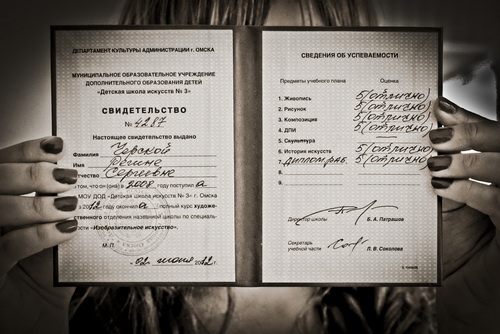 ДЕПАРТАМЕНТ КУЛЬТУРЫ АДМИНИСТРАЦИИ г. ОМСКА
МУНИЦИПАЛЬНОЕ ОБРАЗОВАТЕЛЬНОЕ УЧРЕЖДЕНИЕ
ДОПОЛНИТЕЛЬНОГО ОБРАЗОВАНИЯ ДЕТЕЙ
«Детская школа искусств № 3»
СВИДЕТЕЛЬСТВО
№ 4287
Настоящее свидетельство выдано
Фамилия
Имя Регине
Отчество Сергеевне
в том, что он(она) в 2008 году поступил а
в МОУ ДОД «Детская школа искусств № 3» г. Омска
и в 2012 окончил а полный курс художе-
ственного отделения названной школы по специаль-
ности «Изобразительное искусство».
М.П.
02 июня 2012 г.
СВЕДЕНИЯ ОБ УСПЕВАЕМОСТИ
Предметы учебного плана Оценка
1. Живопись 5 (отлично)
2. Рисунок 5 (отлично)
3. Композиция 5 (отлично)
4. ДПИ 5 (отлично)
5. Скульптура
6. История искусств 5 (отлично)
7. Диплом. раб. 5 (отлично)
8.
9.
Директор школы Б. А. Патрашов
Секретарь
учебной части Л. В. Соколова